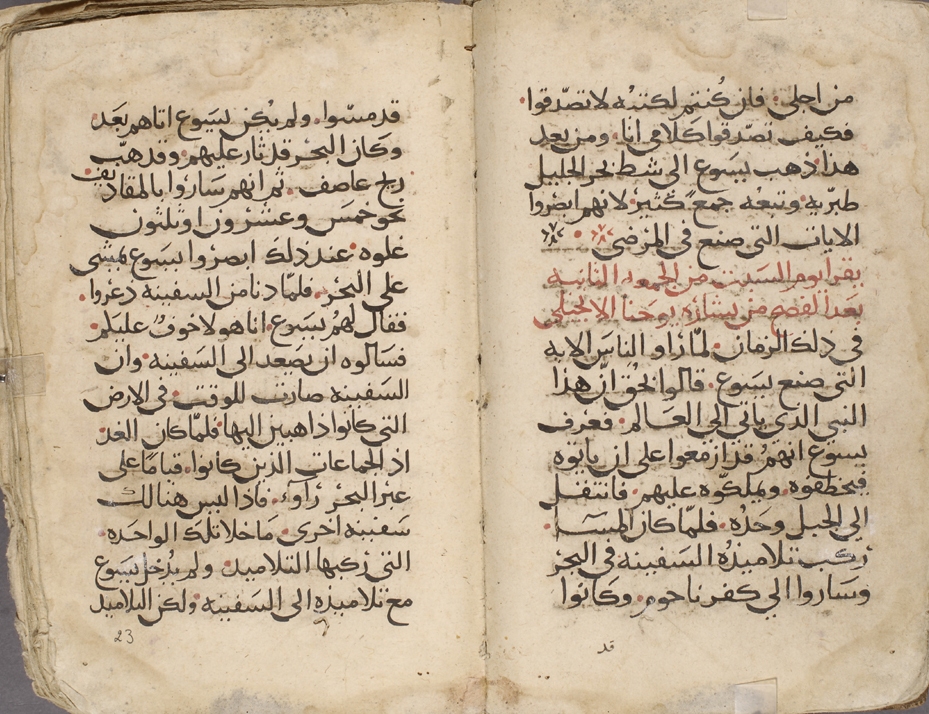 من اجلي: فان كُنتم لكتبه لا تصدّقوا.
فكيف تصدّقوا كلامي انا. ومن بعد
هذا ذهب يسَوع الى شط بحر الجليل
طبرّيه وتبعُه جمعٌ كَثير لانهم ابصروا
الايات التي صنع في المرضى
يقرا يوم السَبت من الجمعه الثانيه
بعد الفصح من بشارة يوحنا الانجيلي
في ذلك الزمان. لمّا راو الناسَ الايه
التي صنع يسَوع. قالوا بالحق انّ هذا
النبي الدي ياتي الي العَالم. فعرف
يسوع انهمُ قد ازمعوا على ان ياتوه
فيخطفوه. ويملكوّه عليهم. فانتقل
الي الجبل وحدُه. فلمّا كان المسَا
ركب تلاميذُه السَفينه في البحر
وسَاروا الي كفرناحوم. وكانوا
قد
قد مسّوا. ولم يكن يسَوع اتاهم بعَد.
وكان البحر قد ثار عليهم. وقد هبّ
ريح عاصف. ثم انهم سَاروا بالمقاديف
نحو خمسَ وعشرون او ثلثون
غلوه. عند ذلك ابصروا يسَوع يمشى
على البحر. فلمّا دنا من السفينه دعروا.
فقال لهُم يسَوع. انا هو لا خوفُ عليكم.
فسَالوه ان يصَعد الى السَفينه. وان
السَفينه صارت للوقت. في الارض
التي كانوا داهبين اليها. فلمّا كان الغد
اذ الجماعات الذين كانوا. قيامًا على
عبر البحر راوا. فاذا ليس هنالك
سَفينه اخرى. مَا خلا تلك الواحده.
التي ركبها التلاميد. ولم يدُخل يسَوع
مع تلاميذه الى السَفينه. ولكن التلاميد
23